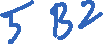 5 B2